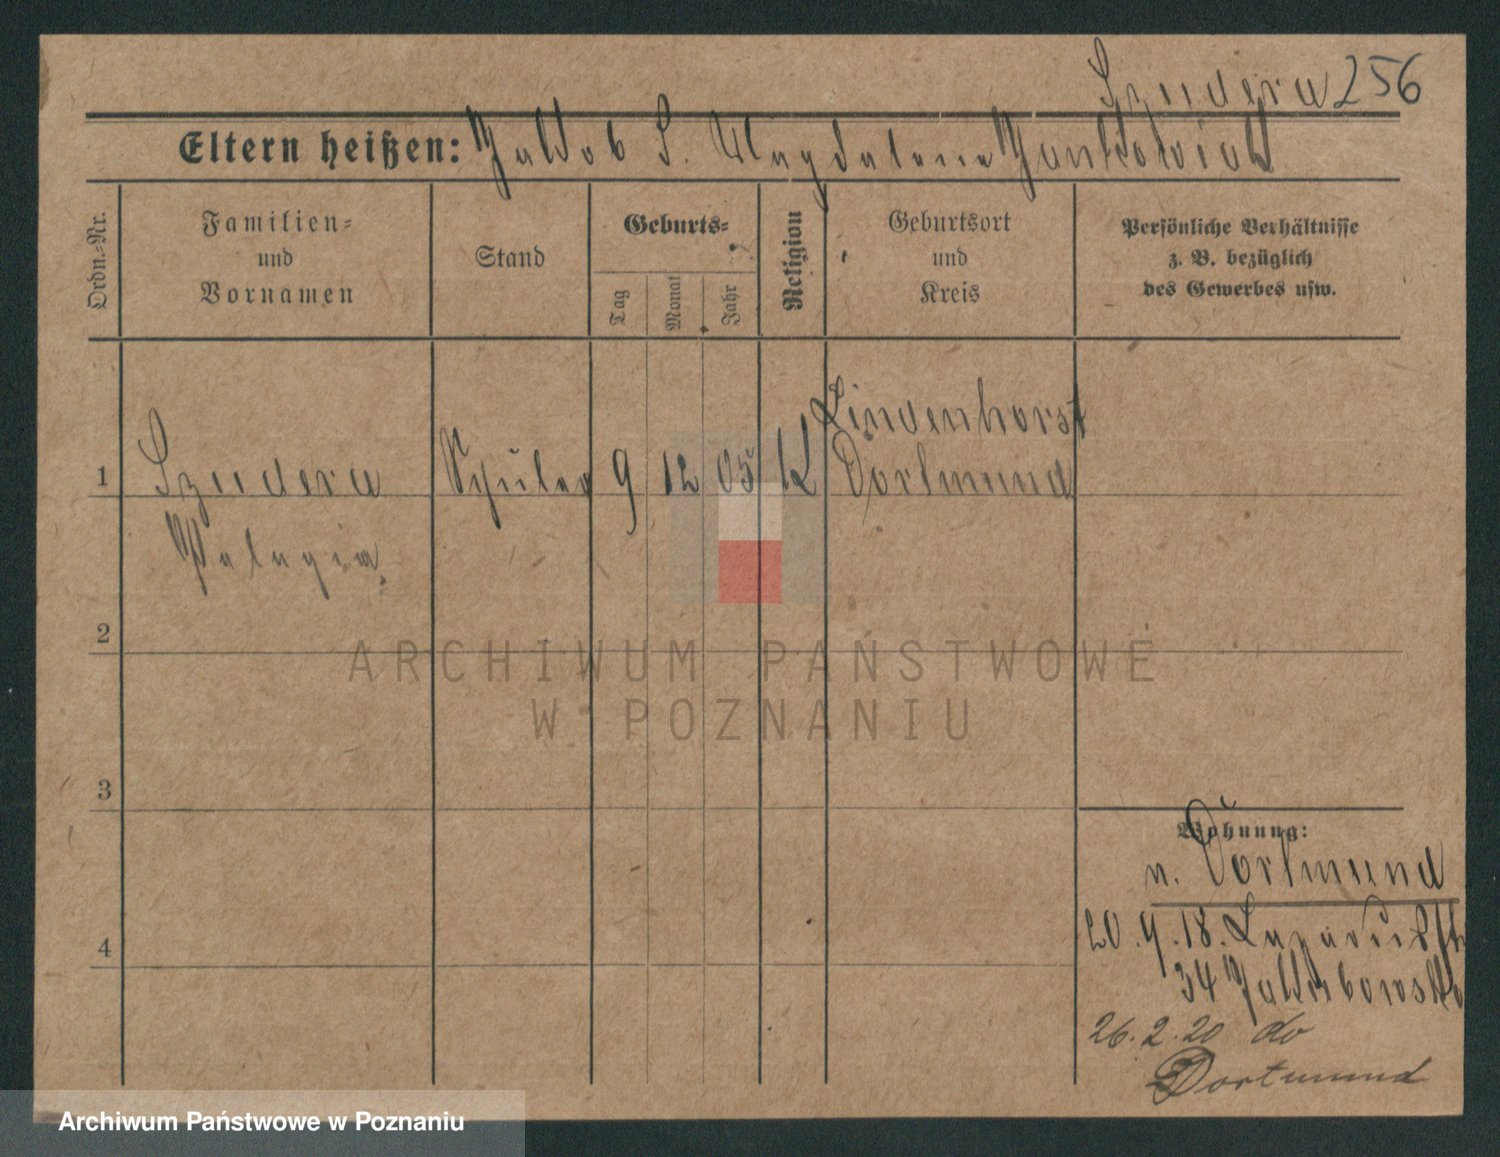 Szudera 256
Eltern heißen: Jakob S. Magdalena Jankowiak
Ordn.-Nr.
Familien-
und
Vornamen
Stand
Geburts-
Tag
Monat
Jahr
Religion
Geburtsort
und
Kreis
Persönliche Verhältnisse
z. B. bezüglich
des Gewerbes usw.
Lindenhorst
1 Szudera Schüler 9 12 05 K Dortmund
Pelagia
2
ARCHIWUM PAŃSTWOWE
W POZNANIU
3
Wohnung:
n. Dortmund
4
20.9.18. Lazarus Str
34 Jakubowski
26.2.20 do
Dortmund
Archiwum Państwowe w Poznaniu